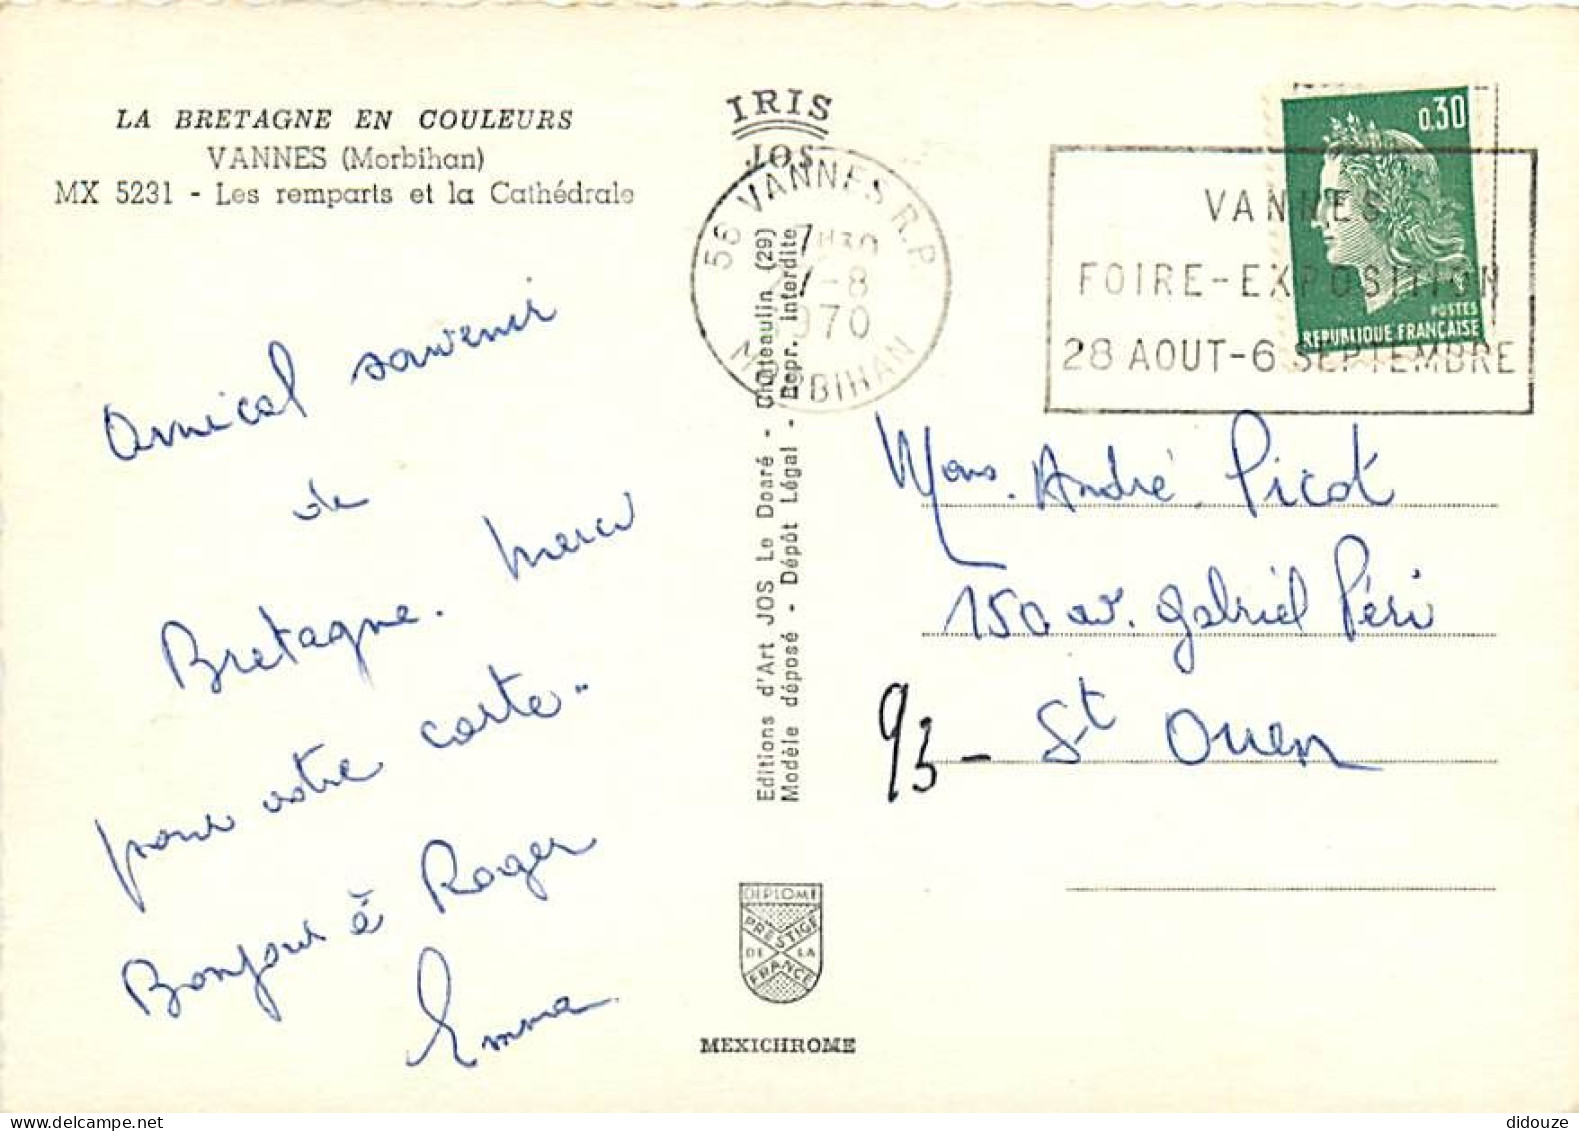 LA BRETAGNE EN COULEURS
VANNES (Morbihan)
MX 5231 - Les remparts et la Cathédrale
Amical souvenir
de
Bretagne. Merci
pour votre carte..
Bonjour à Roger
Emma
IRIS
JOS
56 VANNES R.P.
7H30
27-8
1970
MORBIHAN
Editions d'Art JOS Le Doaré - Châteaulin (29)
Modèle déposé - Dépôt Légal - Repr. interdite
DIPLOME
PRESTIGE
DE LA
FRANCE
MEXICHROME
0,30
POSTES
REPUBLIQUE FRANÇAISE
VANNES
FOIRE-EXPOSITION
28 AOUT-6 SEPTEMBRE
Mons. André Picot
150 av. Gabriel Péri
93 - St Ouen
didouze